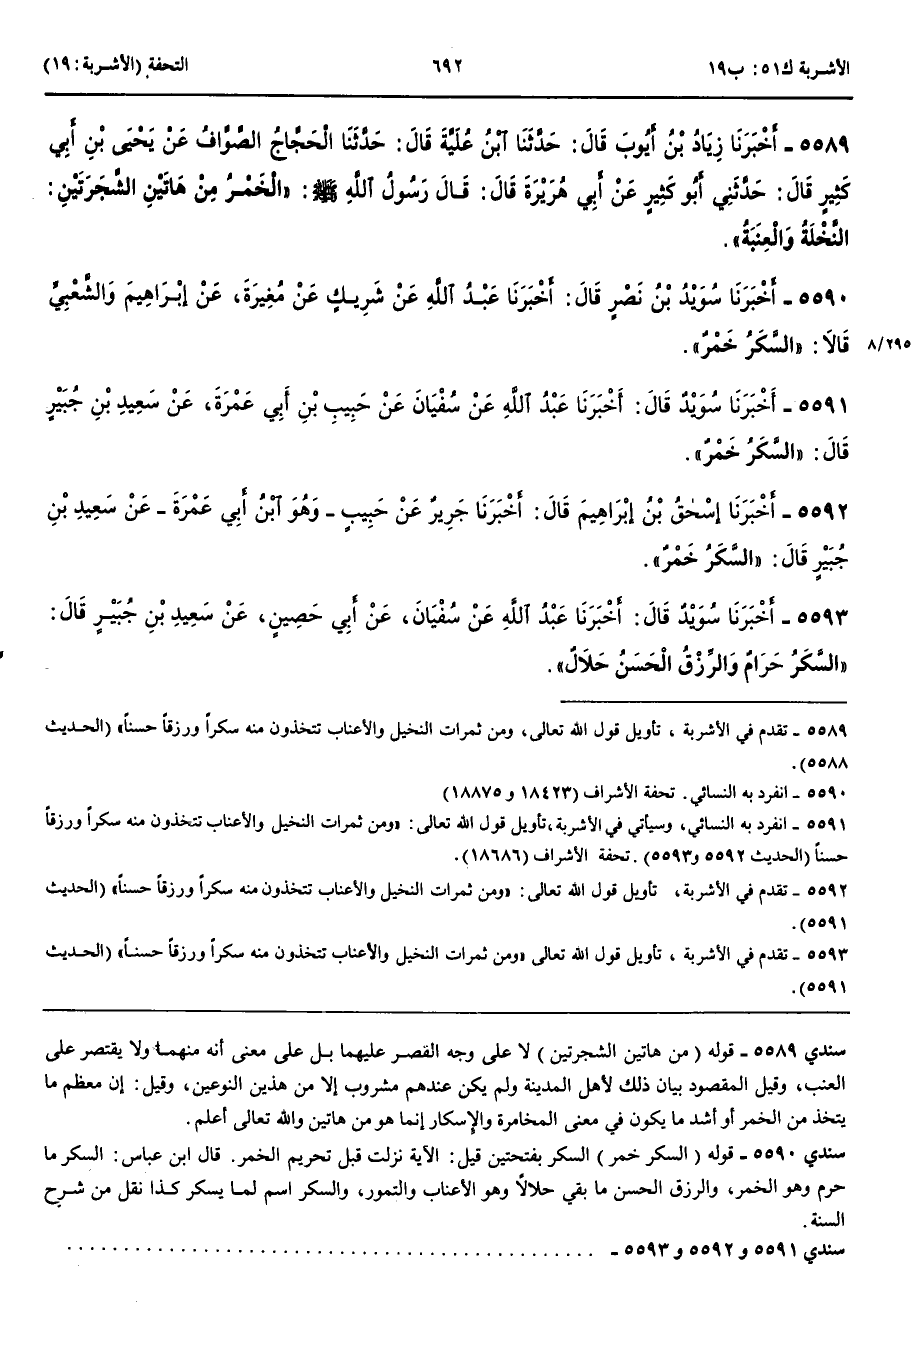 الأشربة ك٥١: ب١٩ ٦٩٢ التحفة (الأشربة: ١٩)
٥٥٨٩ - أَخْبَرَنَا زِيَادُ بْنُ أَيُّوبَ قَالَ: حَدَّثَنَا ٱبْنُ عُلَيَّةَ قَالَ: حَدَّثَنَا الْحَجَّاجُ الصَّوَّافُ عَنْ يَحْيَى بْنِ أَبِي
كَثِيرٍ قَالَ: حَدَّثَنِي أَبُو كَثِيرٍ عَنْ أَبِي هُرَيْرَةَ قَالَ: قَالَ رَسُولُ ٱللَّهِ ﷺ: «الْخَمْرُ مِنْ هَاتَيْنِ الشَّجَرَتَيْنِ:
النَّخْلَةُ وَالْعِنَبَةُ».
٥٥٩٠ - أَخْبَرَنَا سُوَيْدُ بْنُ نَصْرٍ قَالَ: أَخْبَرَنَا عَبْدُ ٱللَّهِ عَنْ شَرِيكٍ عَنْ مُغِيرَةَ، عَنْ إِبْرَاهِيمَ وَالشَّعْبِيِّ
قَالَا: «السَّكَرُ خَمْرٌ».
٨/٢٩٥
٥٥٩١ - أَخْبَرَنَا سُوَيْدٌ قَالَ: أَخْبَرَنَا عَبْدُ ٱللَّهِ عَنْ سُفْيَانَ عَنْ حَبِيبِ بْنِ أَبِي عَمْرَةَ، عَنْ سَعِيدِ بْنِ جُبَيْرٍ
قَالَ: «السَّكَرُ خَمْرٌ».
٥٥٩٢ - أَخْبَرَنَا إِسْحٰقُ بْنُ إِبْرَاهِيمَ قَالَ: أَخْبَرَنَا جَرِيرٌ عَنْ حَبِيبٍ - وَهُوَ ٱبْنُ أَبِي عَمْرَةَ - عَنْ سَعِيدِ بْنِ
جُبَيْرٍ قَالَ: «السَّكَرُ خَمْرٌ».
٥٥٩٣ - أَخْبَرَنَا سُوَيْدٌ قَالَ: أَخْبَرَنَا عَبْدُ ٱللَّهِ عَنْ سُفْيَانَ، عَنْ أَبِي حَصِينٍ، عَنْ سَعِيدِ بْنِ جُبَيْرٍ قَالَ:
«السَّكَرُ حَرَامٌ وَالرِّزْقُ الْحَسَنُ حَلَالٌ».
٥٥٨٩ - تقدم في الأشربة ، تأويل قول الله تعالى، ومن ثمرات النخيل والأعناب تتخذون منه سكراً ورزقاً حسناً» (الحديث
٥٥٨٨).
٥٥٩٠ - انفرد به النسائي. تحفة الأشراف (١٨٤٢٣ و ١٨٨٧٥)
٥٥٩١ - انفرد به النسائي، وسيأتي في الأشربة،تأويل قول الله تعالى: «ومن ثمرات النخيل والأعناب تتخذون منه سكراً ورزقاً
حسناً (الحديث ٥٥٩٢ و٥٥٩٣) .تحفة الأشراف (١٨٦٨٦).
٥٥٩٢ - تقدم في الأشربة، تأويل قول الله تعالى: «ومن ثمرات النخيل والأعناب تتخذون منه سكراً ورزقاً حسناً» (الحديث
٥٥٩١).
٥٥٩٣ - تقدم في الأشربة ، تأويل قول الله تعالى «ومن ثمرات النخيل والأعناب تتخذون منه سكراً ورزقاً حسناً» (الحديث
٥٥٩١).
سندي ٥٥٨٩ - قوله ( من هاتين الشجرتين ) لا على وجه القصر عليهما بل على معنى أنه منهما ولا يقتصر على
العنب، وقيل المقصود بيان ذلك لأهل المدينة ولم يكن عندهم مشروب إلا من هذين النوعين، وقيل: إن معظم ما
يتخذ من الخمر أو أشد ما يكون في معنى المخامرة والإسكار إنما هو من هاتين والله تعالى أعلم.
سندي ٥٥٩٠ - قوله ( السكر خمر ) السكر بفتحتين قيل: الآية نزلت قبل تحريم الخمر. قال ابن عباس: السكر ما
حرم وهو الخمر، والرزق الحسن ما بقي حلالاً وهو الأعناب والتمور، والسكر اسم لما يسكر كذا نقل من شرح
السنة.
سندي ٥٥٩١ و ٥٥٩٢ و ٥٥٩٣ - . . . . . . . . . . . . . . . . . . . . . . . . . . . . . . . . . . . . . . . . . . . .